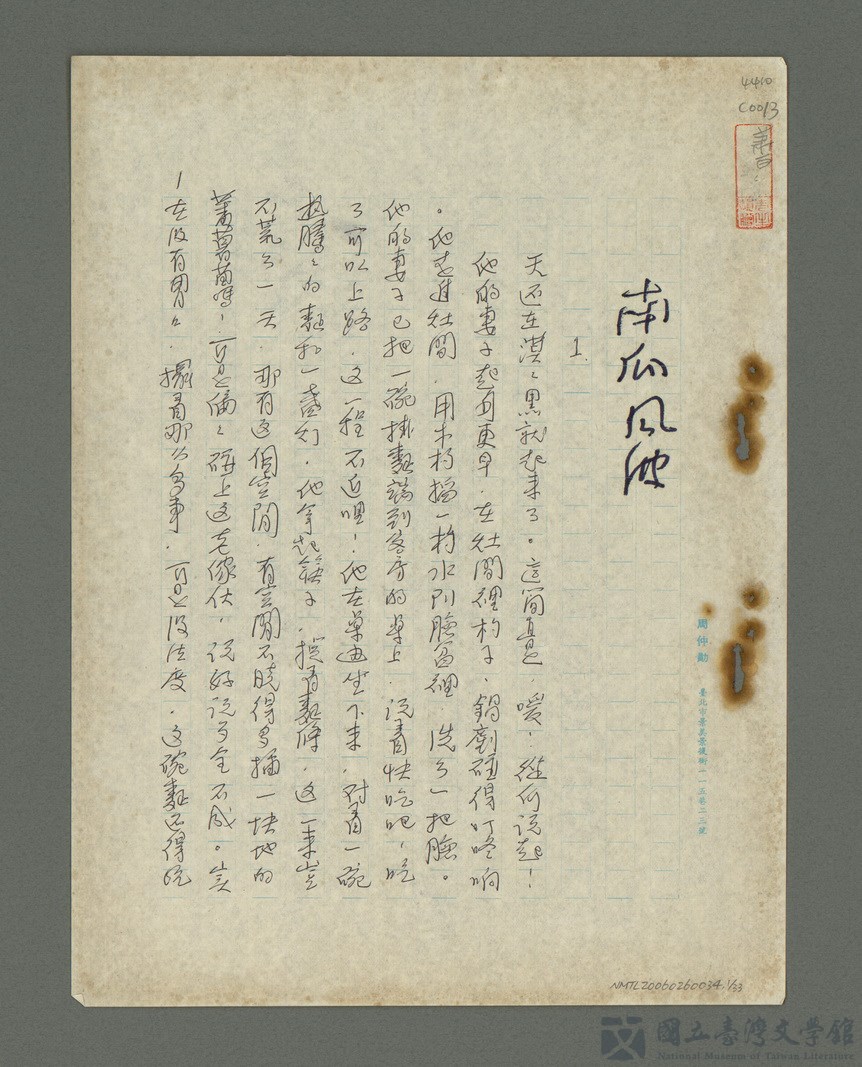 4410
C0013
南瓜風波
1.
天还在漠々黑就起来了。這回真是,嗳,從何说起!
他的妻子起身更早,在灶間裡杓子、鍋剷碰得叮咚响
。他走進灶間,用木杓搯一杓水到臉盆裡,洗了一把臉。
他的妻子已把一碗掛麵端到客房的桌上,说着快吃吧,吃
了可以上路,这一程不近哩!他在桌边坐下来,对着一碗
熱騰々的麵和一盞灯,他拿起筷子,撈着麵條,这一来豈
不荒了一天,那有这個空閒,有空閒不曉得多插一块地的
蕃薯苗嗎!可是偏々碰上这老傢伙,说好说歹全不成。实
在没有胃口,攤着那么多事,可是没法度,这碗麵还得吃
周仲勛 臺北市景美景後街一一三巷二三號
NMTL20060260034.1/33
國立臺灣文學館
National Museum of Taiwan Literature